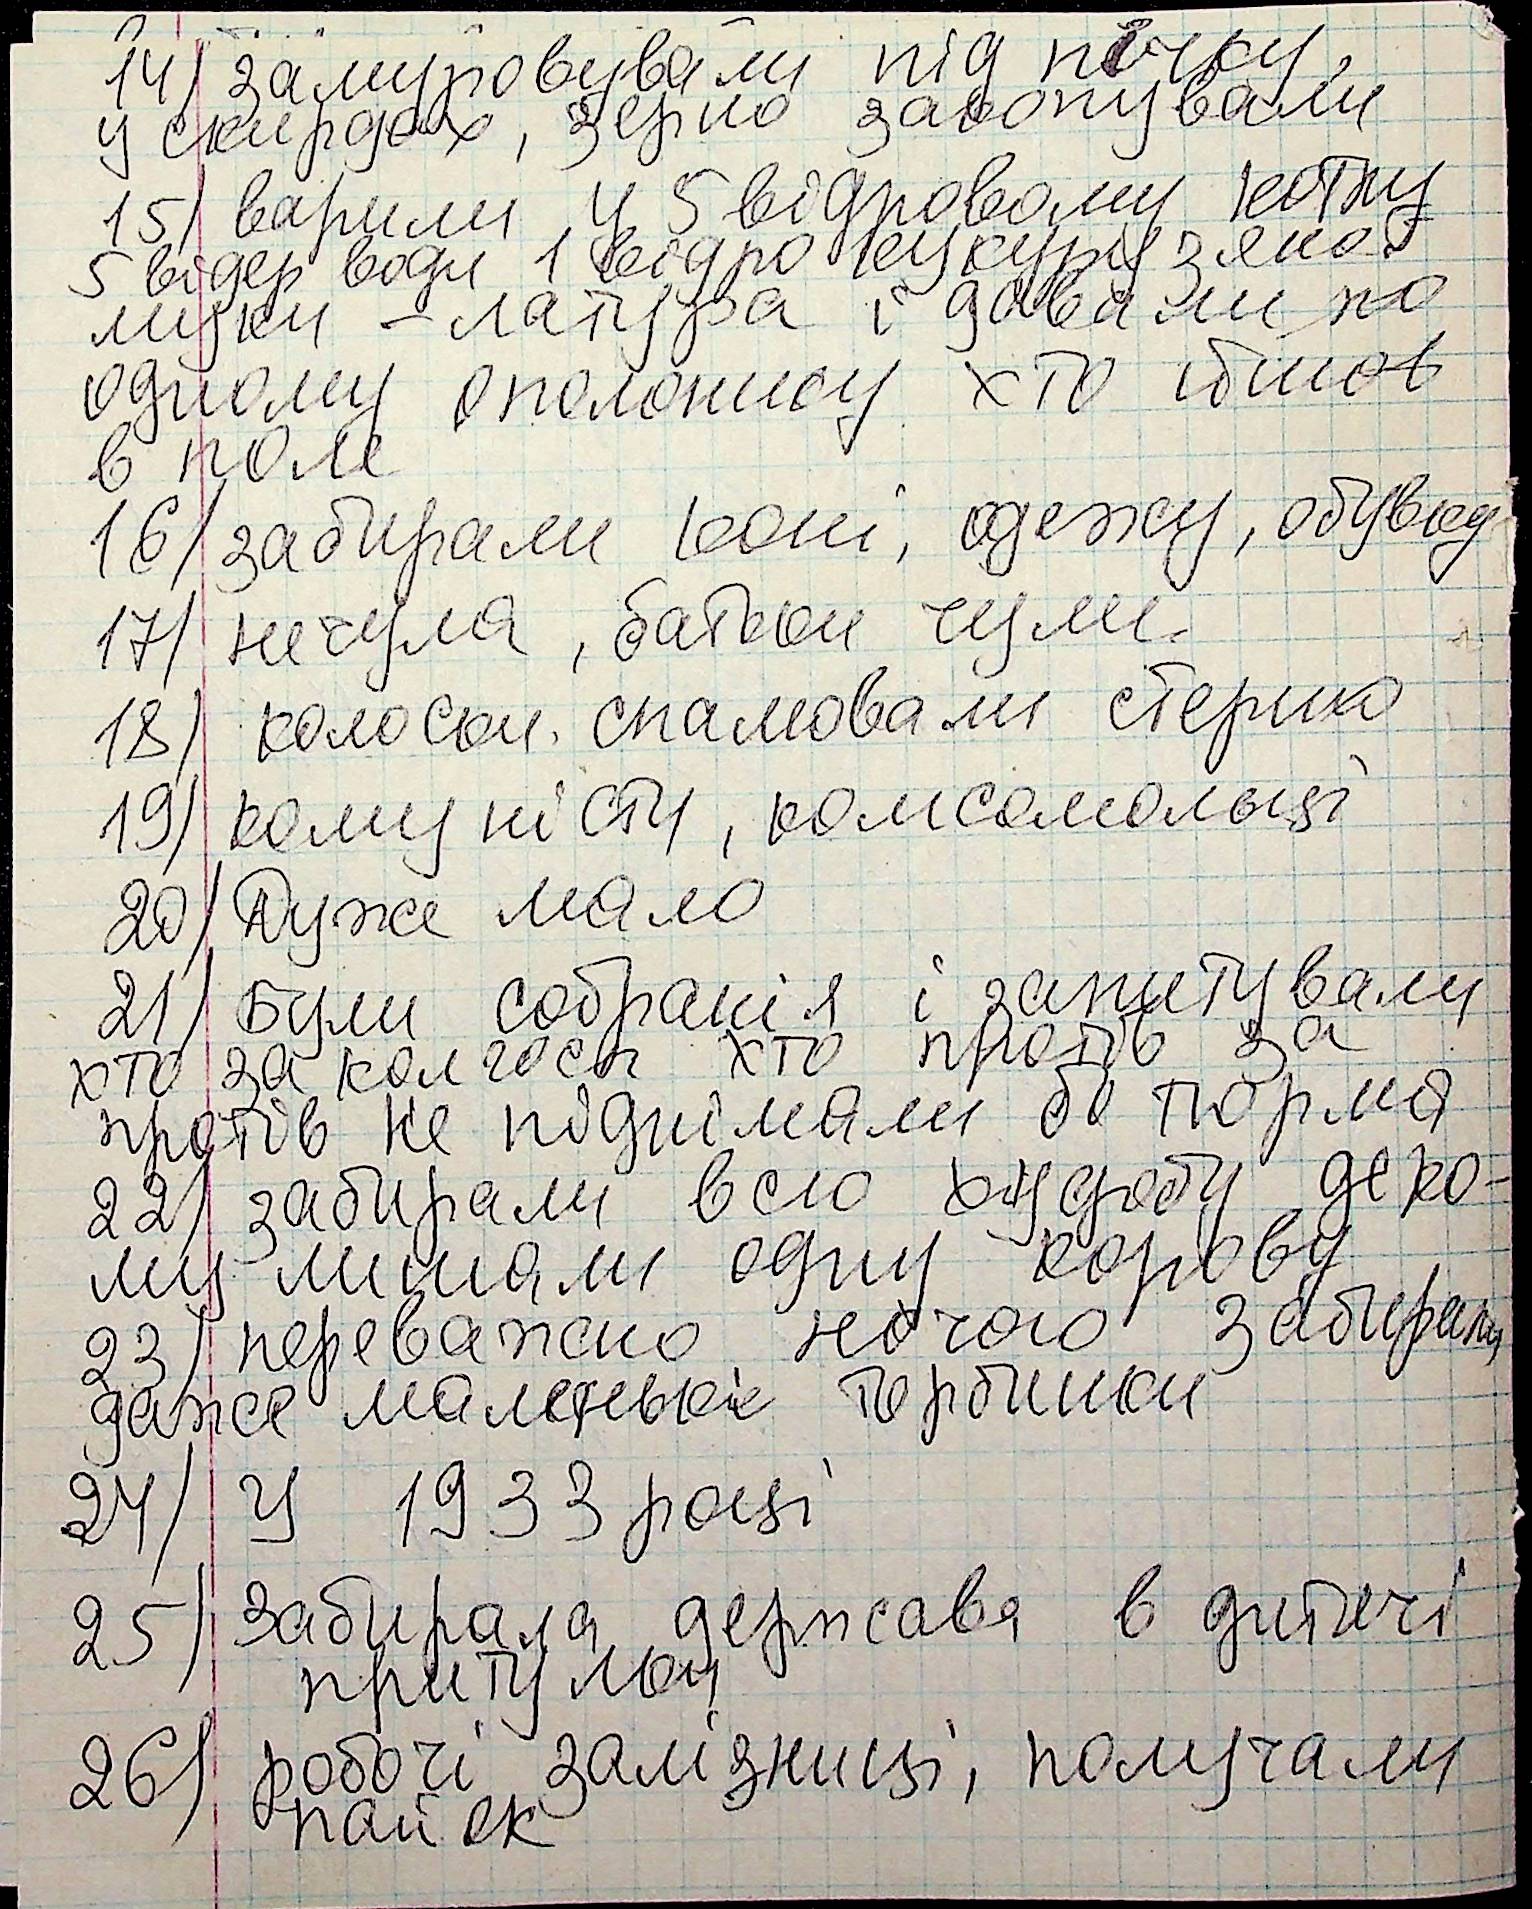 14/ замуровували під пічку,
у скирдах, зерно закопували
15/ варили у 5 відровому котлу
5 відер води 1 відро кукурудзяної
муки – латура і давали по
одному ополонику хто ішов
в поле
16/ забирали коні, одежу, обувку
17/ не чула, батьки чули.
18/ колоски. спалювали стерню
19/ комуністи, комсомольці
20/ Дуже мало
21/ Були собранія і запитували
хто за колгосп хто протів за
протів не піднімали бо тюрма
22/ забирали всю худобу деко-
му лишали одну корову
23/ переважно ночою забирали
даже маленькі торбинки
24/ У 1933 році
25/ Забирала держава в дитячі
притулки
26/ робочі залізниці, получали
пайок